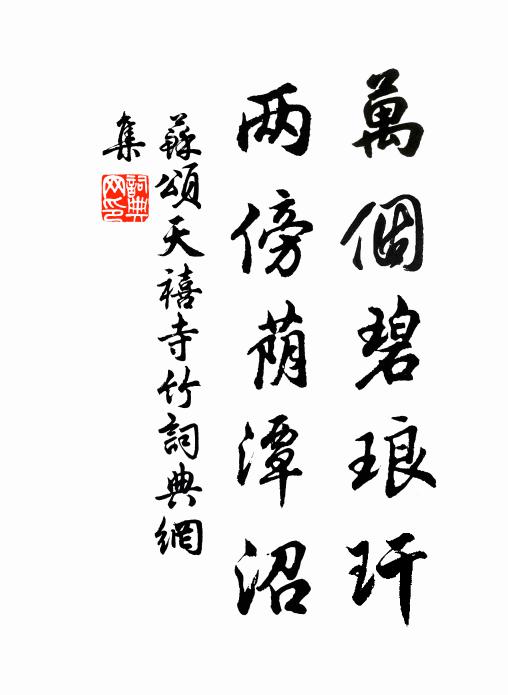 萬個碧琅玕
两傍荫潭沼
蘇頌天禧寺竹詞典網
集
詞典
网印